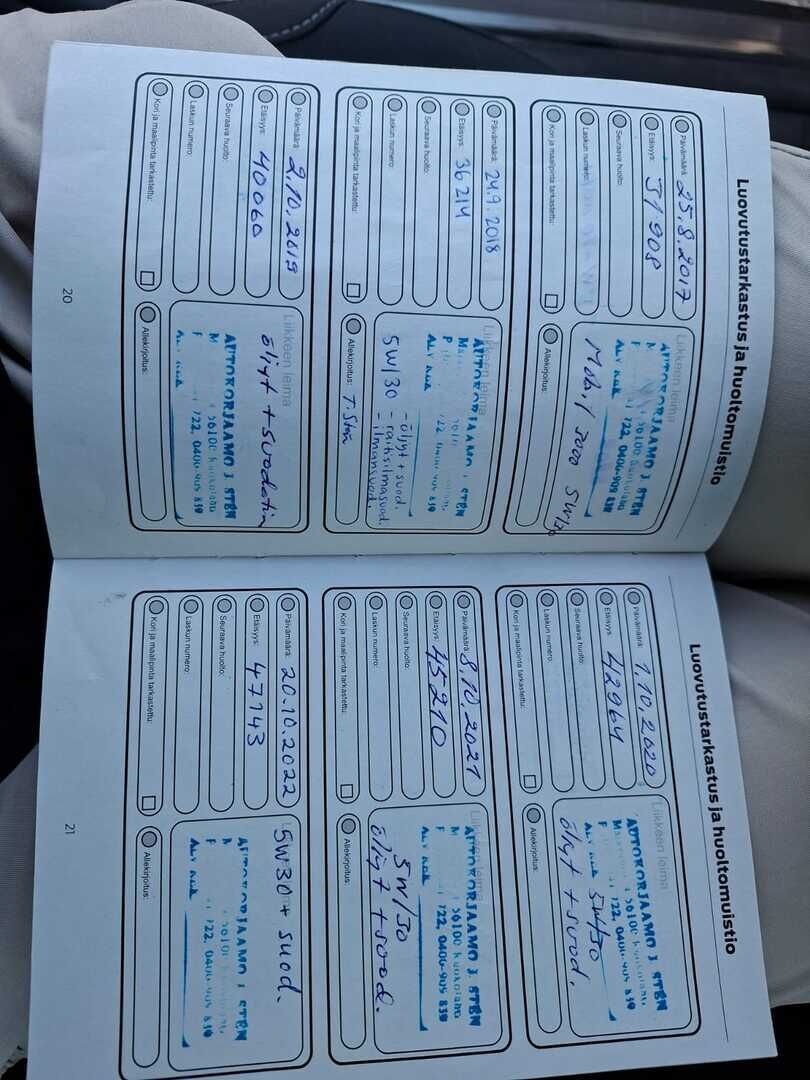 Luovutustarkastus ja huoltomuistio
Päivämäärä: 25.8.2017
Etäisyys: 31908
Seuraava huolto:
Laskun numero:
Kori ja maalipinta tarkastettu:
Liikkeen leima
AUTOKORJAAMO J. STEN
56100
722, 0400-909 839
ALV
Mobil 3000 5W/30
Allekirjoitus:
Päivämäärä: 24.9.2018
Etäisyys: 36214
Seuraava huolto:
Laskun numero:
Kori ja maalipinta tarkastettu:
Liikkeen leima
AUTOKORJAAMO J. STEN
ALV
5W/30 - öljyt + suod.
- raitisilmasuod.
- ilmansuod.
Allekirjoitus: T. Sten
Päivämäärä: 2.10.2019
Etäisyys: 40060
Seuraava huolto:
Laskun numero:
Kori ja maalipinta tarkastettu:
Liikkeen leima
öljyt + suodatin
AUTOKORJAAMO J. STEN
56100
722, 0400-909 839
ALV
Allekirjoitus:
20
Luovutustarkastus ja huoltomuistio
Päivämäärä: 1.10.2020
Etäisyys: 42964
Seuraava huolto:
Laskun numero:
Kori ja maalipinta tarkastettu:
Liikkeen leima
AUTOKORJAAMO J. STEN
56100
722, 0400-909 839
ALV
5W/30
öljyt + suod.
Allekirjoitus:
Päivämäärä: 8.10.2021
Etäisyys: 45210
Seuraava huolto:
Laskun numero:
Kori ja maalipinta tarkastettu:
Liikkeen leima
AUTOKORJAAMO J. STEN
56100
722, 0400-909 839
ALV
5W/30
öljyt + suod.
Allekirjoitus:
Päivämäärä: 20.10.2022
Etäisyys: 47143
Seuraava huolto:
Laskun numero:
Kori ja maalipinta tarkastettu:
5W30 + suod.
AUTOKORJAAMO J. STEN
56100
722, 0400-909 839
ALV
Allekirjoitus:
21